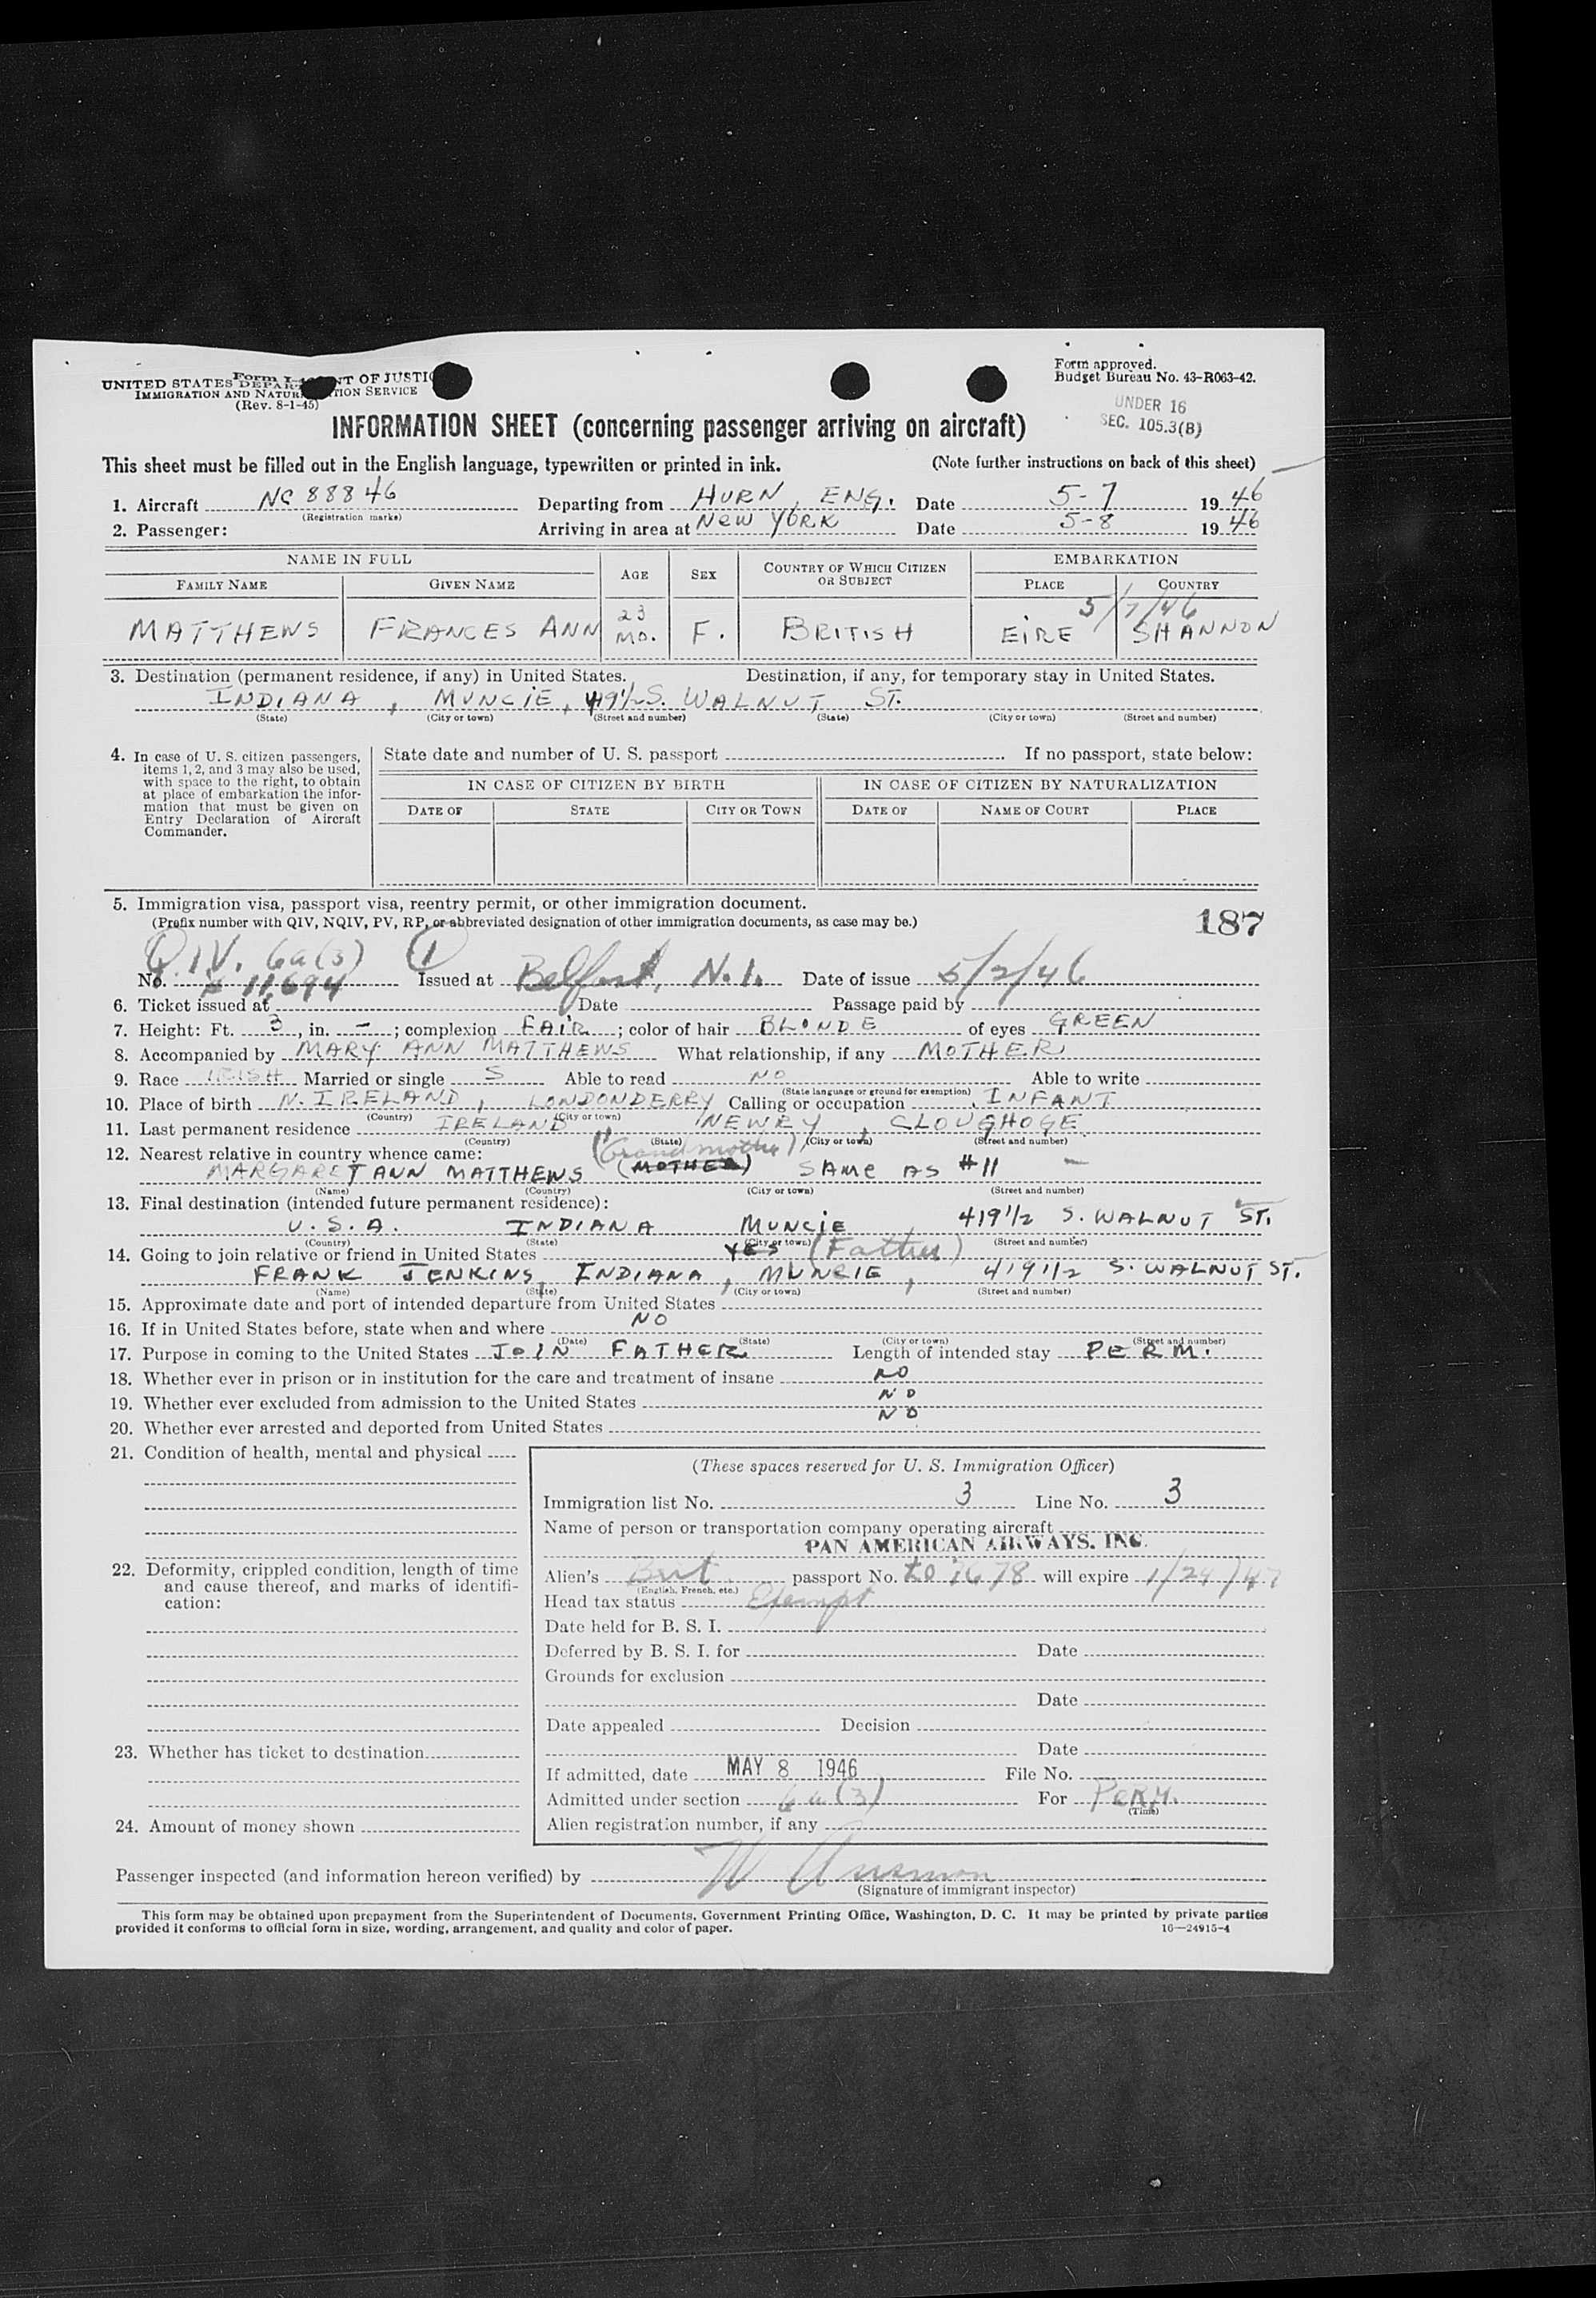 Form I-
UNITED STATES DEPARTMENT OF JUSTICE
IMMIGRATION AND NATURALIZATION SERVICE
(Rev. 8-1-45)
Form approved.
Budget Bureau No. 43-R063-42.
UNDER 16
SEC. 105.3(B)
INFORMATION SHEET (concerning passenger arriving on aircraft)
This sheet must be filled out in the English language, typewritten or printed in ink. (Note further instructions on back of this sheet)
1. Aircraft NC 88846 Departing from HURN, ENG. Date 5-7 1946
(Registration marks)
2. Passenger: Arriving in area at NEW YORK Date 5-8 1946
NAME IN FULL AGE SEX COUNTRY OF WHICH CITIZEN OR SUBJECT EMBARKATION
FAMILY NAME GIVEN NAME PLACE COUNTRY
5/7/46
MATTHEWS FRANCES ANN 23 MO. F. BRITISH EIRE SHANNON
3. Destination (permanent residence, if any) in United States. Destination, if any, for temporary stay in United States.
INDIANA, MUNCIE, 419 1/2 S. WALNUT ST.
(State) (City or town) (Street and number) (State) (City or town) (Street and number)
4. In case of U. S. citizen passengers, items 1, 2, and 3 may also be used, with space to the right, to obtain at place of embarkation the information that must be given on Entry Declaration of Aircraft Commander.
State date and number of U. S. passport If no passport, state below:
IN CASE OF CITIZEN BY BIRTH IN CASE OF CITIZEN BY NATURALIZATION
DATE OF STATE CITY OR TOWN DATE OF NAME OF COURT PLACE
5. Immigration visa, passport visa, reentry permit, or other immigration document.
(Prefix number with QIV, NQIV, PV, RP, or abbreviated designation of other immigration documents, as case may be.) 187
Q.I.V. 6a(3) (1)
No. # 11,694 Issued at Belfast, N.I. Date of issue 5/2/46
6. Ticket issued at Date Passage paid by
7. Height: Ft. 3, in. -; complexion FAIR; color of hair BLONDE of eyes GREEN
8. Accompanied by MARY ANN MATTHEWS What relationship, if any MOTHER
9. Race IRISH Married or single S Able to read NO Able to write
(State language or ground for exemption)
10. Place of birth N. IRELAND, LONDONDERRY Calling or occupation INFANT
(Country) (City or town)
11. Last permanent residence IRELAND, NEWRY, CLOUGHOGE
(Country) (State) (City or town) (Street and number)
12. Nearest relative in country whence came: (Grandmother)
MARGARET ANN MATTHEWS (MOTHER) SAME AS #11 -
(Name) (Country) (City or town) (Street and number)
13. Final destination (intended future permanent residence):
U.S.A. INDIANA MUNCIE 419 1/2 S. WALNUT ST.
(Country) (State) (City or town) (Street and number)
14. Going to join relative or friend in United States YES (Father)
FRANK JENKINS, INDIANA, MUNCIE, 419 1/2 S. WALNUT ST.
(Name) (State) (City or town) (Street and number)
15. Approximate date and port of intended departure from United States
16. If in United States before, state when and where NO
(Date) (State) (City or town) (Street and number)
17. Purpose in coming to the United States JOIN FATHER Length of intended stay PERM.
18. Whether ever in prison or in institution for the care and treatment of insane NO
19. Whether ever excluded from admission to the United States NO
20. Whether ever arrested and deported from United States NO
21. Condition of health, mental and physical
22. Deformity, crippled condition, length of time and cause thereof, and marks of identification:
23. Whether has ticket to destination
24. Amount of money shown
(These spaces reserved for U. S. Immigration Officer)
Immigration list No. 3 Line No. 3
Name of person or transportation company operating aircraft
PAN AMERICAN AIRWAYS, INC.
Alien's Brit. passport No. will expire 1/24/47
(English, French, etc.)
Head tax status Exempt
Date held for B. S. I.
Deferred by B. S. I. for Date
Grounds for exclusion
Date
Date appealed Decision
Date
If admitted, date MAY 8 1946 File No.
Admitted under section 6a(3) For PERM.
(Time)
Alien registration number, if any
Passenger inspected (and information hereon verified) by
(Signature of immigrant inspector)
This form may be obtained upon prepayment from the Superintendent of Documents, Government Printing Office, Washington, D. C. It may be printed by private parties
provided it conforms to official form in size, wording, arrangement, and quality and color of paper. 16—24915-4